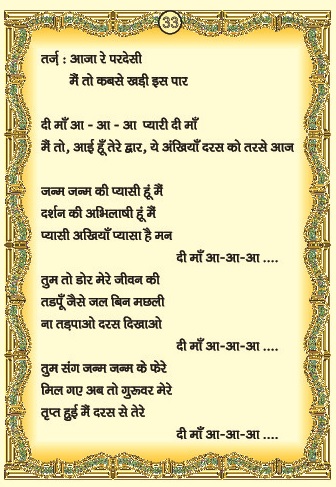 33
तर्ज : आजा रे परदेसी
मैं तो कबसे खड़ी इस पार
दी माँ आ - आ - आ प्यारी दी माँ
मैं तो, आई हूँ तेरे द्वार, ये अंखियाँ दरस को तरसे आज
जन्म जन्म की प्यासी हूं मैं
दर्शन की अभिलाषी हूं मैं
प्यासी अखियाँ प्यासा है मन
दी माँ आ-आ-आ ....
तुम तो डोर मेरे जीवन की
तडपूँ जैसे जल बिन मछली
ना तड़पाओ दरस दिखाओ
दी माँ आ-आ-आ ....
तुम संग जन्म जन्म के फेरे
मिल गए अब तो गुरूवर मेरे
तृप्त हुई मैं दरस से तेरे
दी माँ आ-आ-आ ....